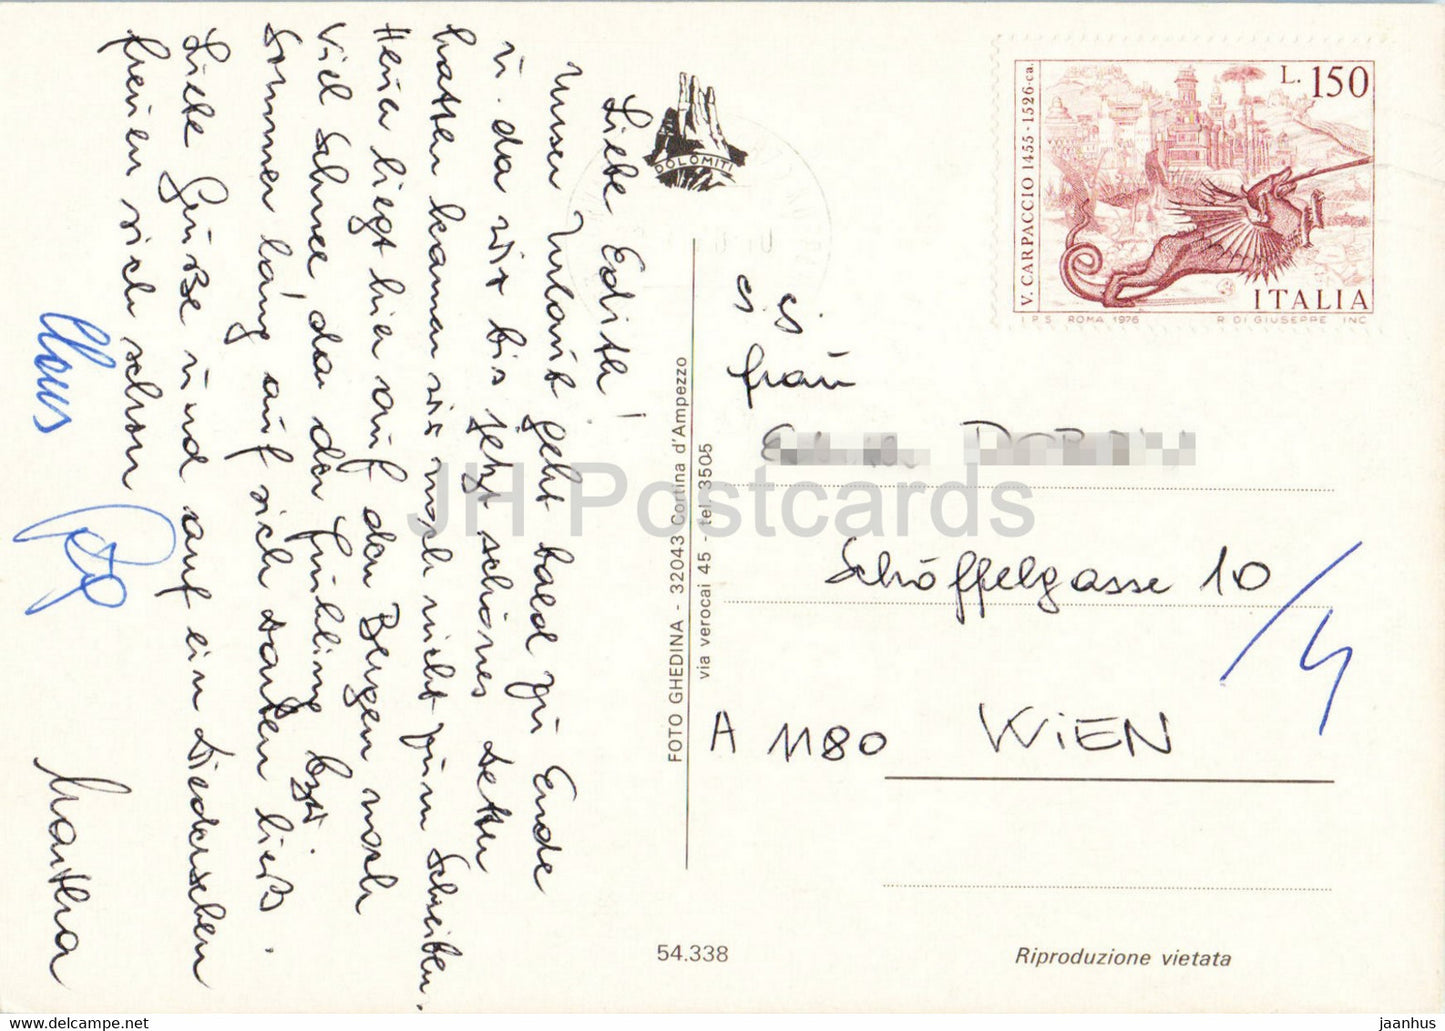 Liebe Edith!
Unser Urlaub geht bald zu Ende
u. da wir bis jetzt schönes Wetter
hatten kamen wir noch nicht zum Schreiben.
Heuer liegt hier auf den Bergen noch
viel Schnee, da der Frühling bzw.
Sommer lang auf sich warten ließ.
Liebe Grüße und auf ein Wiedersehen
freuen sich schon
Martha
DOLOMITI
FOTO GHEDINA - 32043 Cortina d'Ampezzo
via verocai 45 - tel. 3505
54.338
V. CARPACCIO 1455-1526-ca.
L. 150
ITALIA
I.P.S. ROMA 1976 R. DI GIUSEPPE INC.
Frau
Schöffelgasse 10
/4
A 1180 WIEN
Riproduzione vietata
JH Postcards
www.delcampe.net
jaanhus